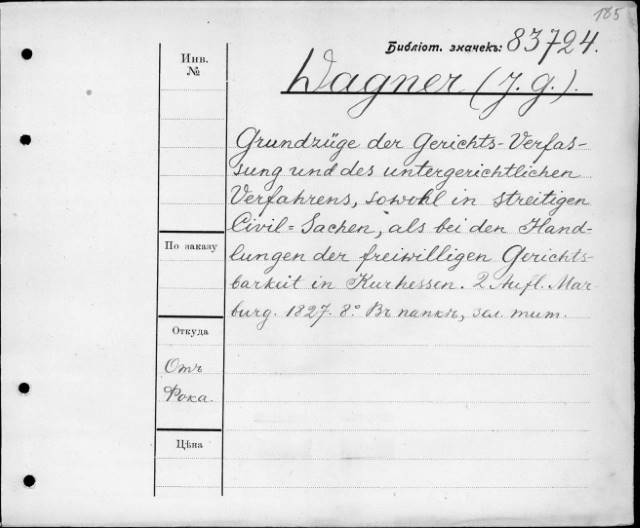 185
Библіот. значекъ: 83724.
Инв.
№
Wagner (J. G.).
Grundzüge der Gerichts-Verfas-
sung und des untergerichtlichen
Verfahrens, sowohl in streitigen
Civil=Sachen, als bei den Hand-
lungen der freiwilligen Gerichts-
barkeit in Kurhessen. 2 Aufl. Mar-
burg. 1827. 8º Въ папкѣ, зол. тит.
По заказу
Откуда
Отъ
Рока.
Цѣна